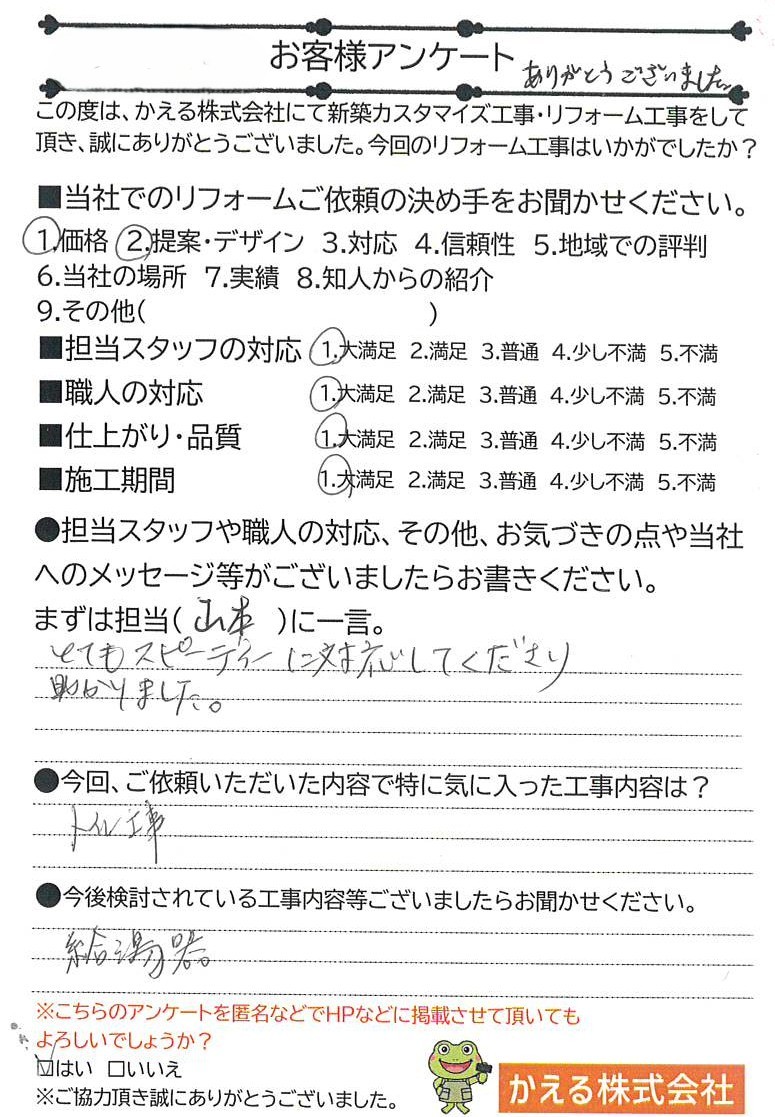 お客様アンケート
ありがとうございました。
この度は、かえる株式会社にて新築カスタマイズ工事・リフォーム工事をして
頂き、誠にありがとうございました。今回のリフォーム工事はいかがでしたか？
■当社でのリフォームご依頼の決め手をお聞かせください。
1.価格 2.提案・デザイン 3.対応 4.信頼性 5.地域での評判
6.当社の場所 7.実績 8.知人からの紹介
9.その他( )
■担当スタッフの対応 1.大満足 2.満足 3.普通 4.少し不満 5.不満
■職人の対応 1.大満足 2.満足 3.普通 4.少し不満 5.不満
■仕上がり・品質 1.大満足 2.満足 3.普通 4.少し不満 5.不満
■施工期間 1.大満足 2.満足 3.普通 4.少し不満 5.不満
●担当スタッフや職人の対応、その他、お気づきの点や当社
へのメッセージ等がございましたらお書きください。
まずは担当( 山本 )に一言。
とてもスピーディーに対応してくださり
助かりました。
●今回、ご依頼いただいた内容で特に気に入った工事内容は？
トイレ工事
●今後検討されている工事内容等ございましたらお聞かせください。
給湯器。
※こちらのアンケートを匿名などでHPなどに掲載させて頂いても
よろしいでしょうか？
☑はい □いいえ
※ご協力頂き誠にありがとうございました。
かえる株式会社